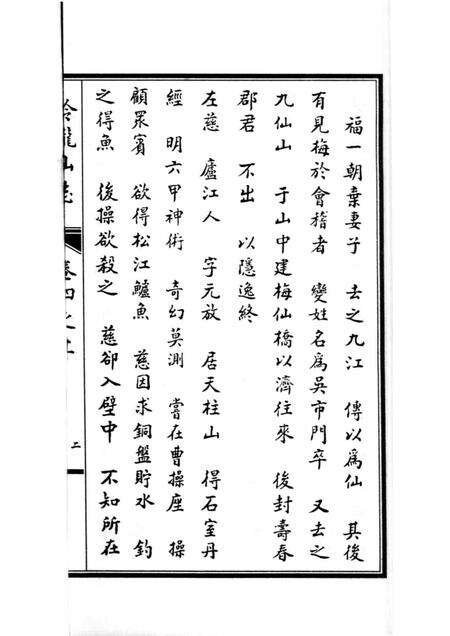 福一朝棄妻子　去之九江　傳以爲仙　其後
有見梅於會稽者　變姓名爲吳市門卒　又去之
九仙山　于山中建梅仙橋以濟往來　後封壽春
郡君　不出　以隱逸終
左慈　廬江人　字元放　居天柱山　得石室丹
經　明六甲神術　奇幻莫測　嘗在曹操座　操
顧眾賓　欲得松江鱸魚　慈因求銅盤貯水　釣
之得魚　後操欲殺之　慈卻入壁中　不知所在
山志
卷四之上
二